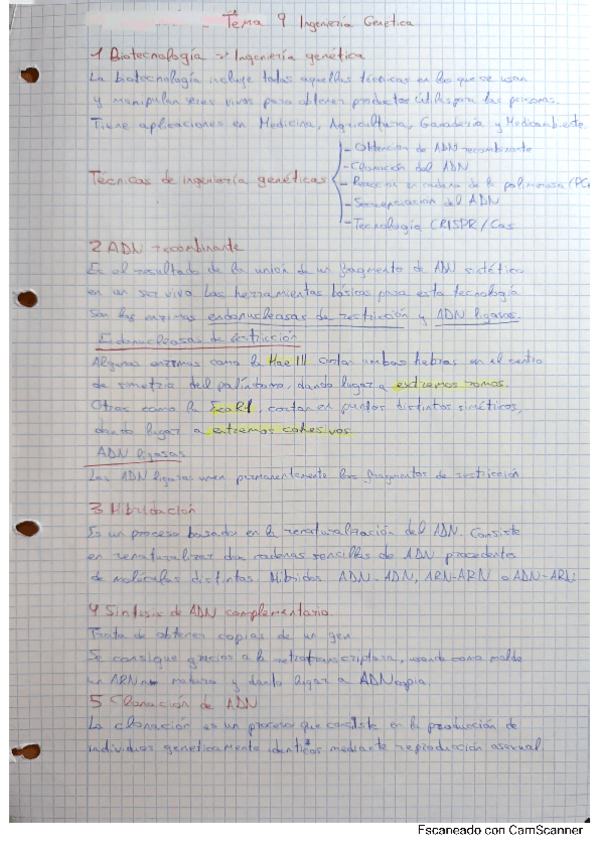 Tema 9 Ingeniería Genetica
1 Biotecnología → Ingeniería genética
La biotecnología incluye todas aquellas técnicas en las que se usan
y manipulan seres vivos para obtener productos útiles para las personas.
Tiene aplicaciones en Medicina, Agricultura, Ganadería y Medioambiente
Técnicas de ingeniería genéticas
- Obtención de ADN recombinante
- Clonación del ADN
- Reacción en cadena de la polimerasa (PC
- Secuenciación del ADN
- Tecnología CRISPR/Cas
2 ADN recombinante
Es el resultado de la unión de un fragmento de ADN sintético
en un ser vivo. Las herramientas básicas para esta tecnología
son las enzimas endonucleasas de restricción y ADN ligasas.
Endonucleasas de restricción
Algunas enzimas como la Hae III cortan ambas hebras en el centro
de simetría del palíndromo, dando lugar a extremos romos.
Otras como la EcoR1, cortan en puntos distintos simétricos,
dando lugar a extremos cohesivos
ADN ligasas
Las ADN ligasas unen permanentemente los fragmentos de restricción
3 Hibridación
Es un proceso basado en la renaturalización del ADN. Consiste
en renaturalizar dos cadenas sencillas de ADN procedentes
de moléculas distintas. Híbridos ADN-ADN, ARN-ARN o ADN-ARN
4 Síntesis de ADN complementario
Trata de obtener copias de un gen
Se consigue gracias a la retrotranscriptasa, usando como molde
un ARNm maduro y dando lugar a ADNcopia
5 Clonación de ADN
La clonación es un proceso que consiste en la producción de
individuos genéticamente idénticos mediante reproducción asexual.
Escaneado con CamScanner